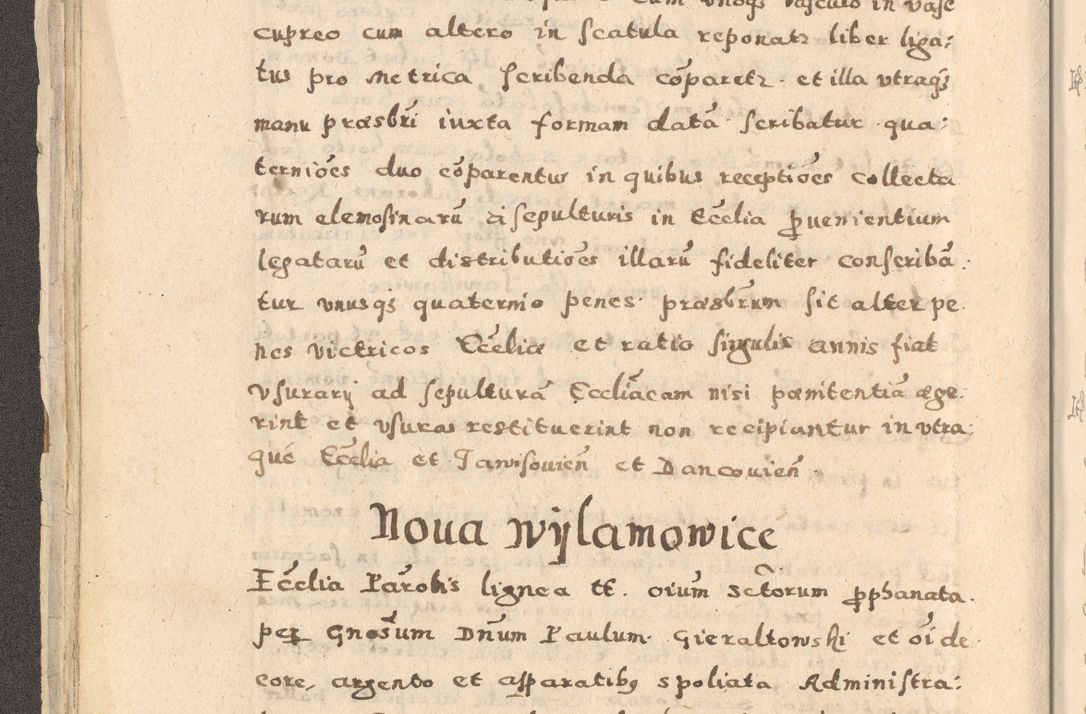 cum unoqs vasculo in vase
cupreo cum altero in scatula reponatr liber liga:
tus pro Metrica scribenda cōparetr et illa utraqs
manu præsbri iuxta formam datā scribatur qua:
terniōes duo cōparentur in quibus receptiōes collecta
rum elemosinarū a sepulturis in Ecclia pvenientium
legatarū et distributiōes illarū fideliter conscribā.
tur unusqs quaternio penes præsbrum sit alter pe.
nes victricos Ecclię et ratio singulis annis fiat
Usurarij ad sepulturā Eccliacam nisi pænitentiā ęge.
rint et usuras restituerint non recipiantur in utra:
que Ecclia et Jawisovien et Dancovien
Noua Wylamowice
Ecclia Parohis lignea tt. oium sctorum pphanata.
per Gnosum Dnum Paulum Gieraltowski et oi de
core, argento et apparatibs spoliata Administra: